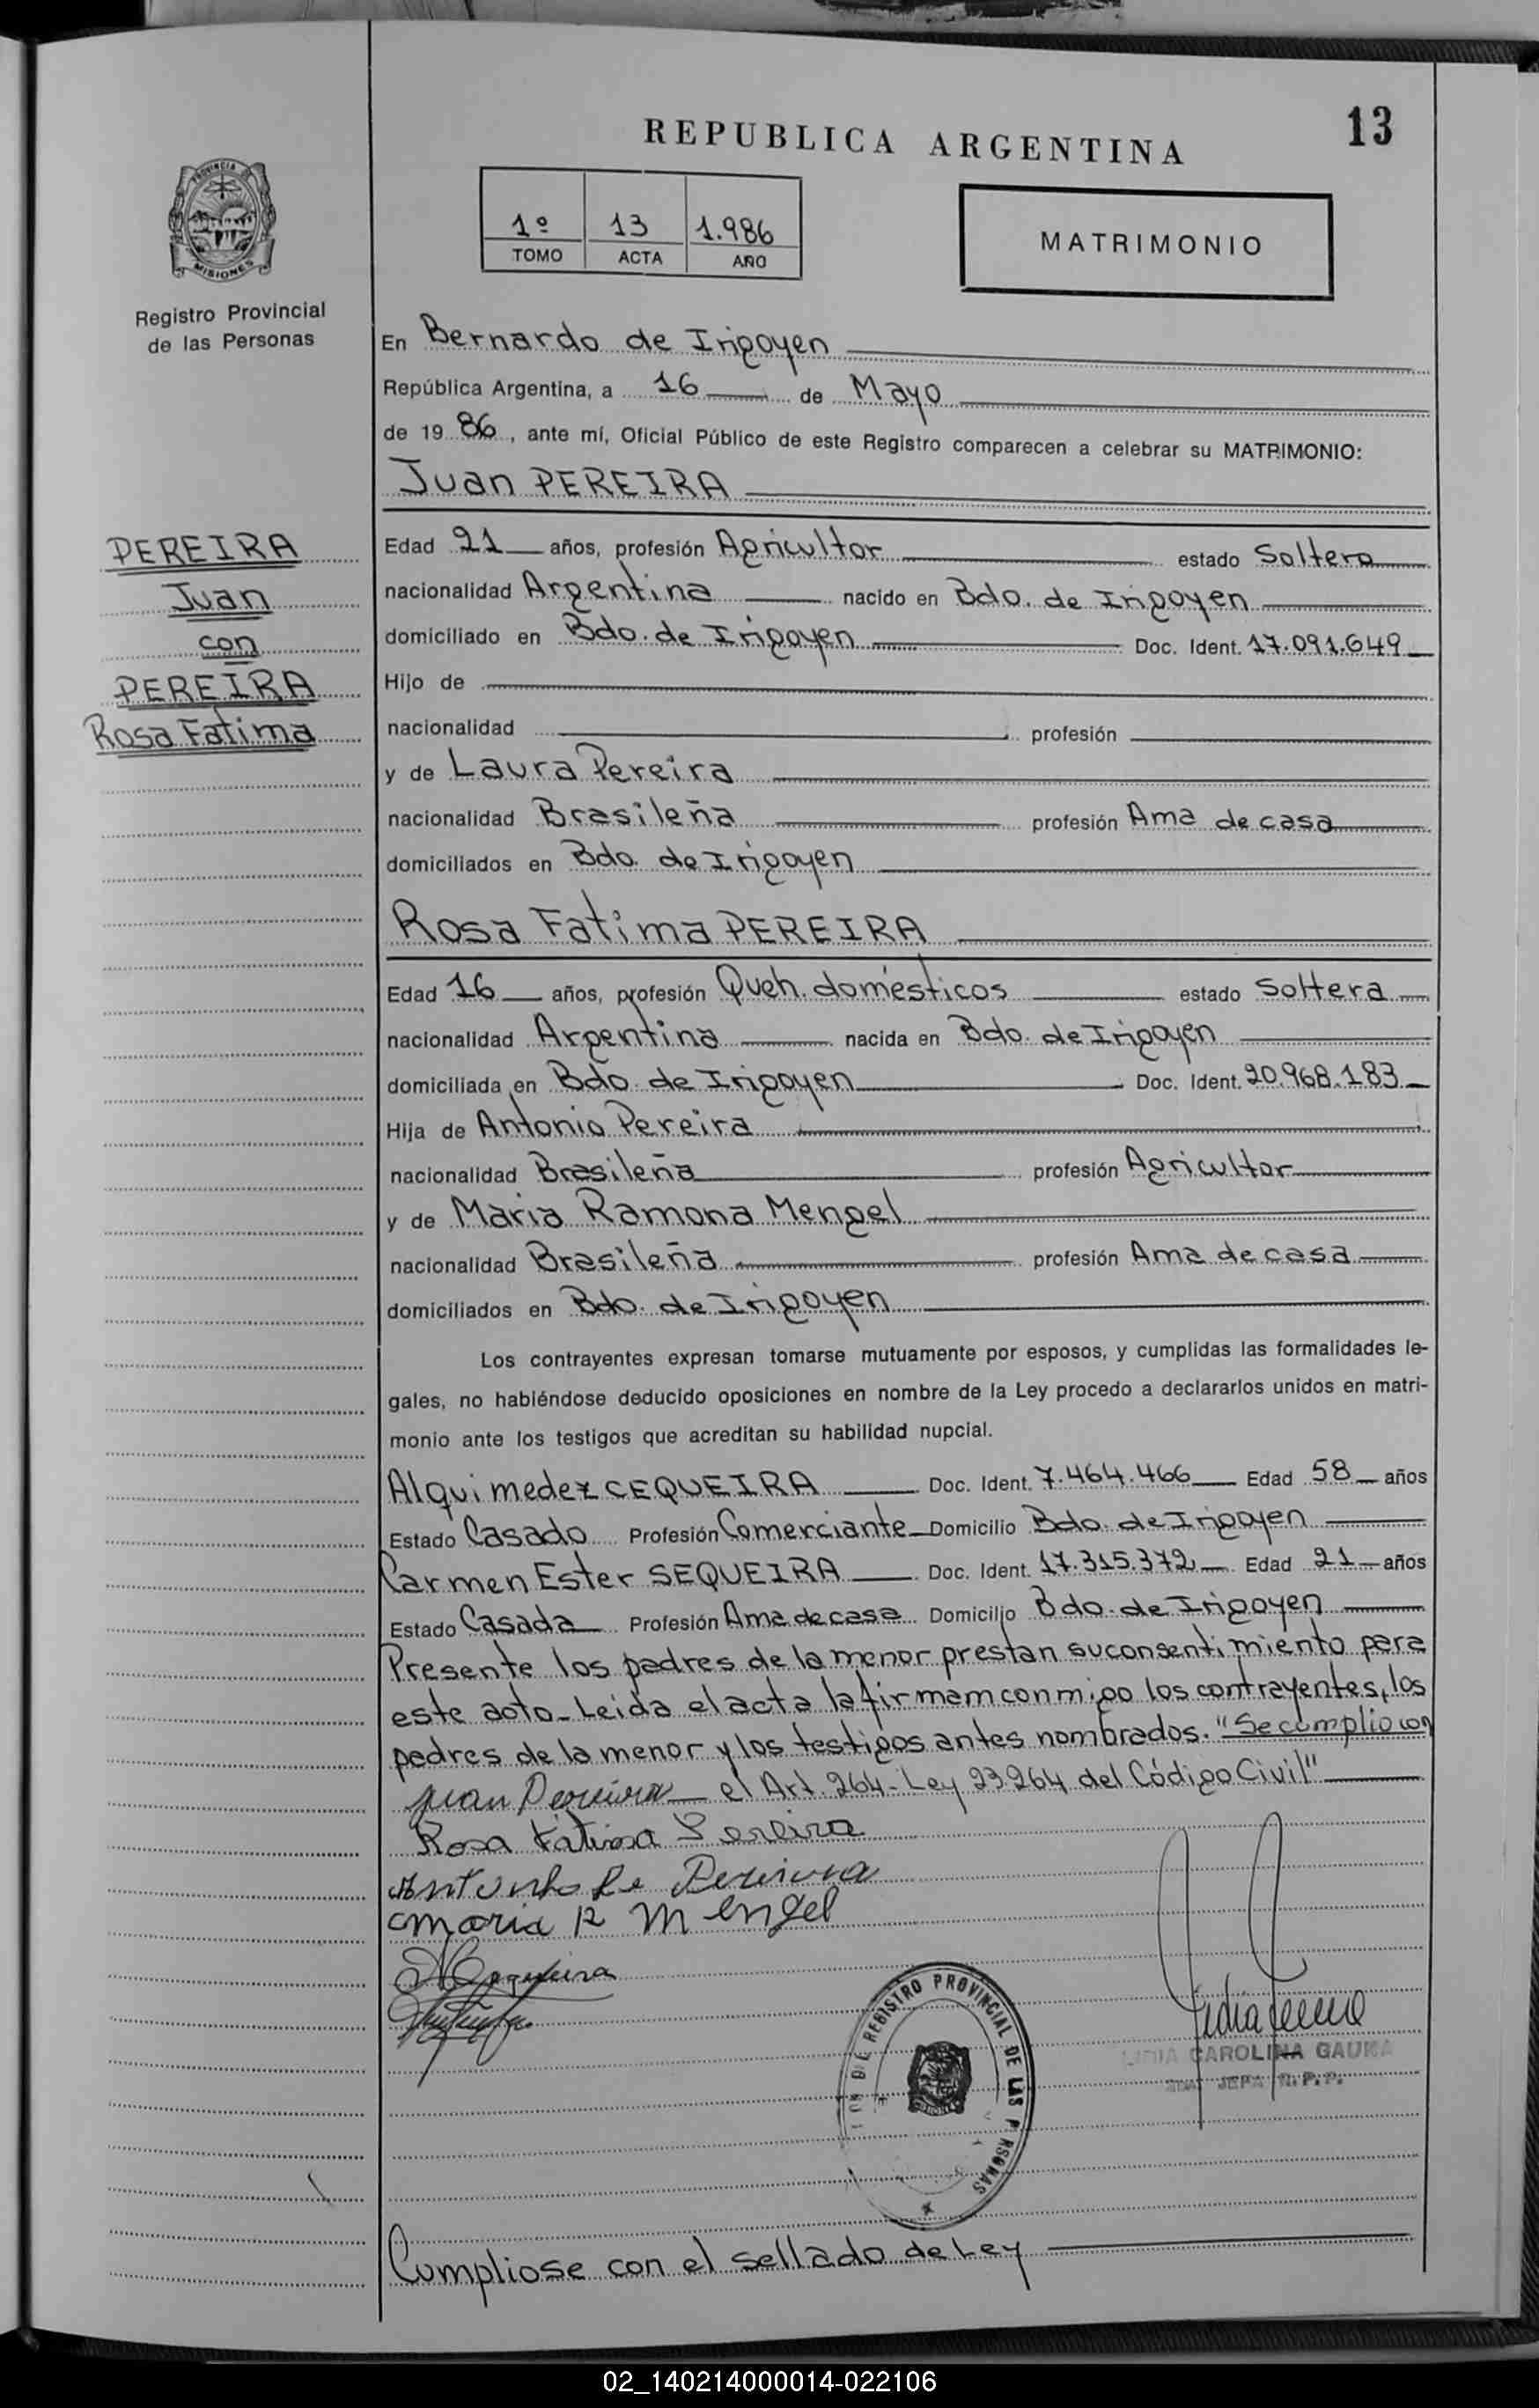 13
REPUBLICA ARGENTINA
1º 13 1.986
TOMO ACTA AÑO
MATRIMONIO
PROVINCIA DE
MISIONES
Registro Provincial
de las Personas
En Bernardo de Irigoyen
República Argentina, a 16 de Mayo
de 19 86, ante mí, Oficial Público de este Registro comparecen a celebrar su MATRIMONIO:
Juan PEREIRA
PEREIRA
Juan
con
PEREIRA
Rosa Fatima
Edad 21 años, profesión Agricultor estado Soltero
nacionalidad Argentina nacido en Bdo. de Irigoyen
domiciliado en Bdo. de Irigoyen Doc. Ident. 17.091.649
Hijo de
nacionalidad profesión
y de Laura Pereira
nacionalidad Brasileña profesión Ama de casa
domiciliados en Bdo. de Irigoyen
Rosa Fatima PEREIRA
Edad 16 años, profesión Queh. domésticos estado Soltera
nacionalidad Argentina nacida en Bdo. de Irigoyen
domiciliada en Bdo. de Irigoyen Doc. Ident. 20.968.183
Hija de Antonio Pereira
nacionalidad Brasileña profesión Agricultor
y de Maria Ramona Mengel
nacionalidad Brasileña profesión Ama de casa
domiciliados en Bdo. de Irigoyen
Los contrayentes expresan tomarse mutuamente por esposos, y cumplidas las formalidades le-
gales, no habiéndose deducido oposiciones en nombre de la Ley procedo a declararlos unidos en matri-
monio ante los testigos que acreditan su habilidad nupcial.
Alquimedez CEQUEIRA Doc. Ident. 7.464.466 Edad 58 años
Estado Casado Profesión Comerciante Domicilio Bdo. de Irigoyen
Carmen Ester SEQUEIRA Doc. Ident. 17.315.372 Edad 21 años
Estado Casada Profesión Ama de casa Domicilio Bdo. de Irigoyen
Presente los padres de la menor prestan su consentimiento para
este acto. Leida el acta la firmam conmigo los contrayentes, los
padres de la menor y los testigos antes nombrados. "Se cumplio con
Juan Pereira el Art. 264- Ley 23264 del Código Civil"
Rosa Fatima Pereira
maria R Mengel
REGISTRO PROVINCIAL DE LAS PERSONAS
LIDIA CAROLINA GAUNA
JEFA R.P.P.
Cumpliose con el sellado de Ley
02_140214000014-022106